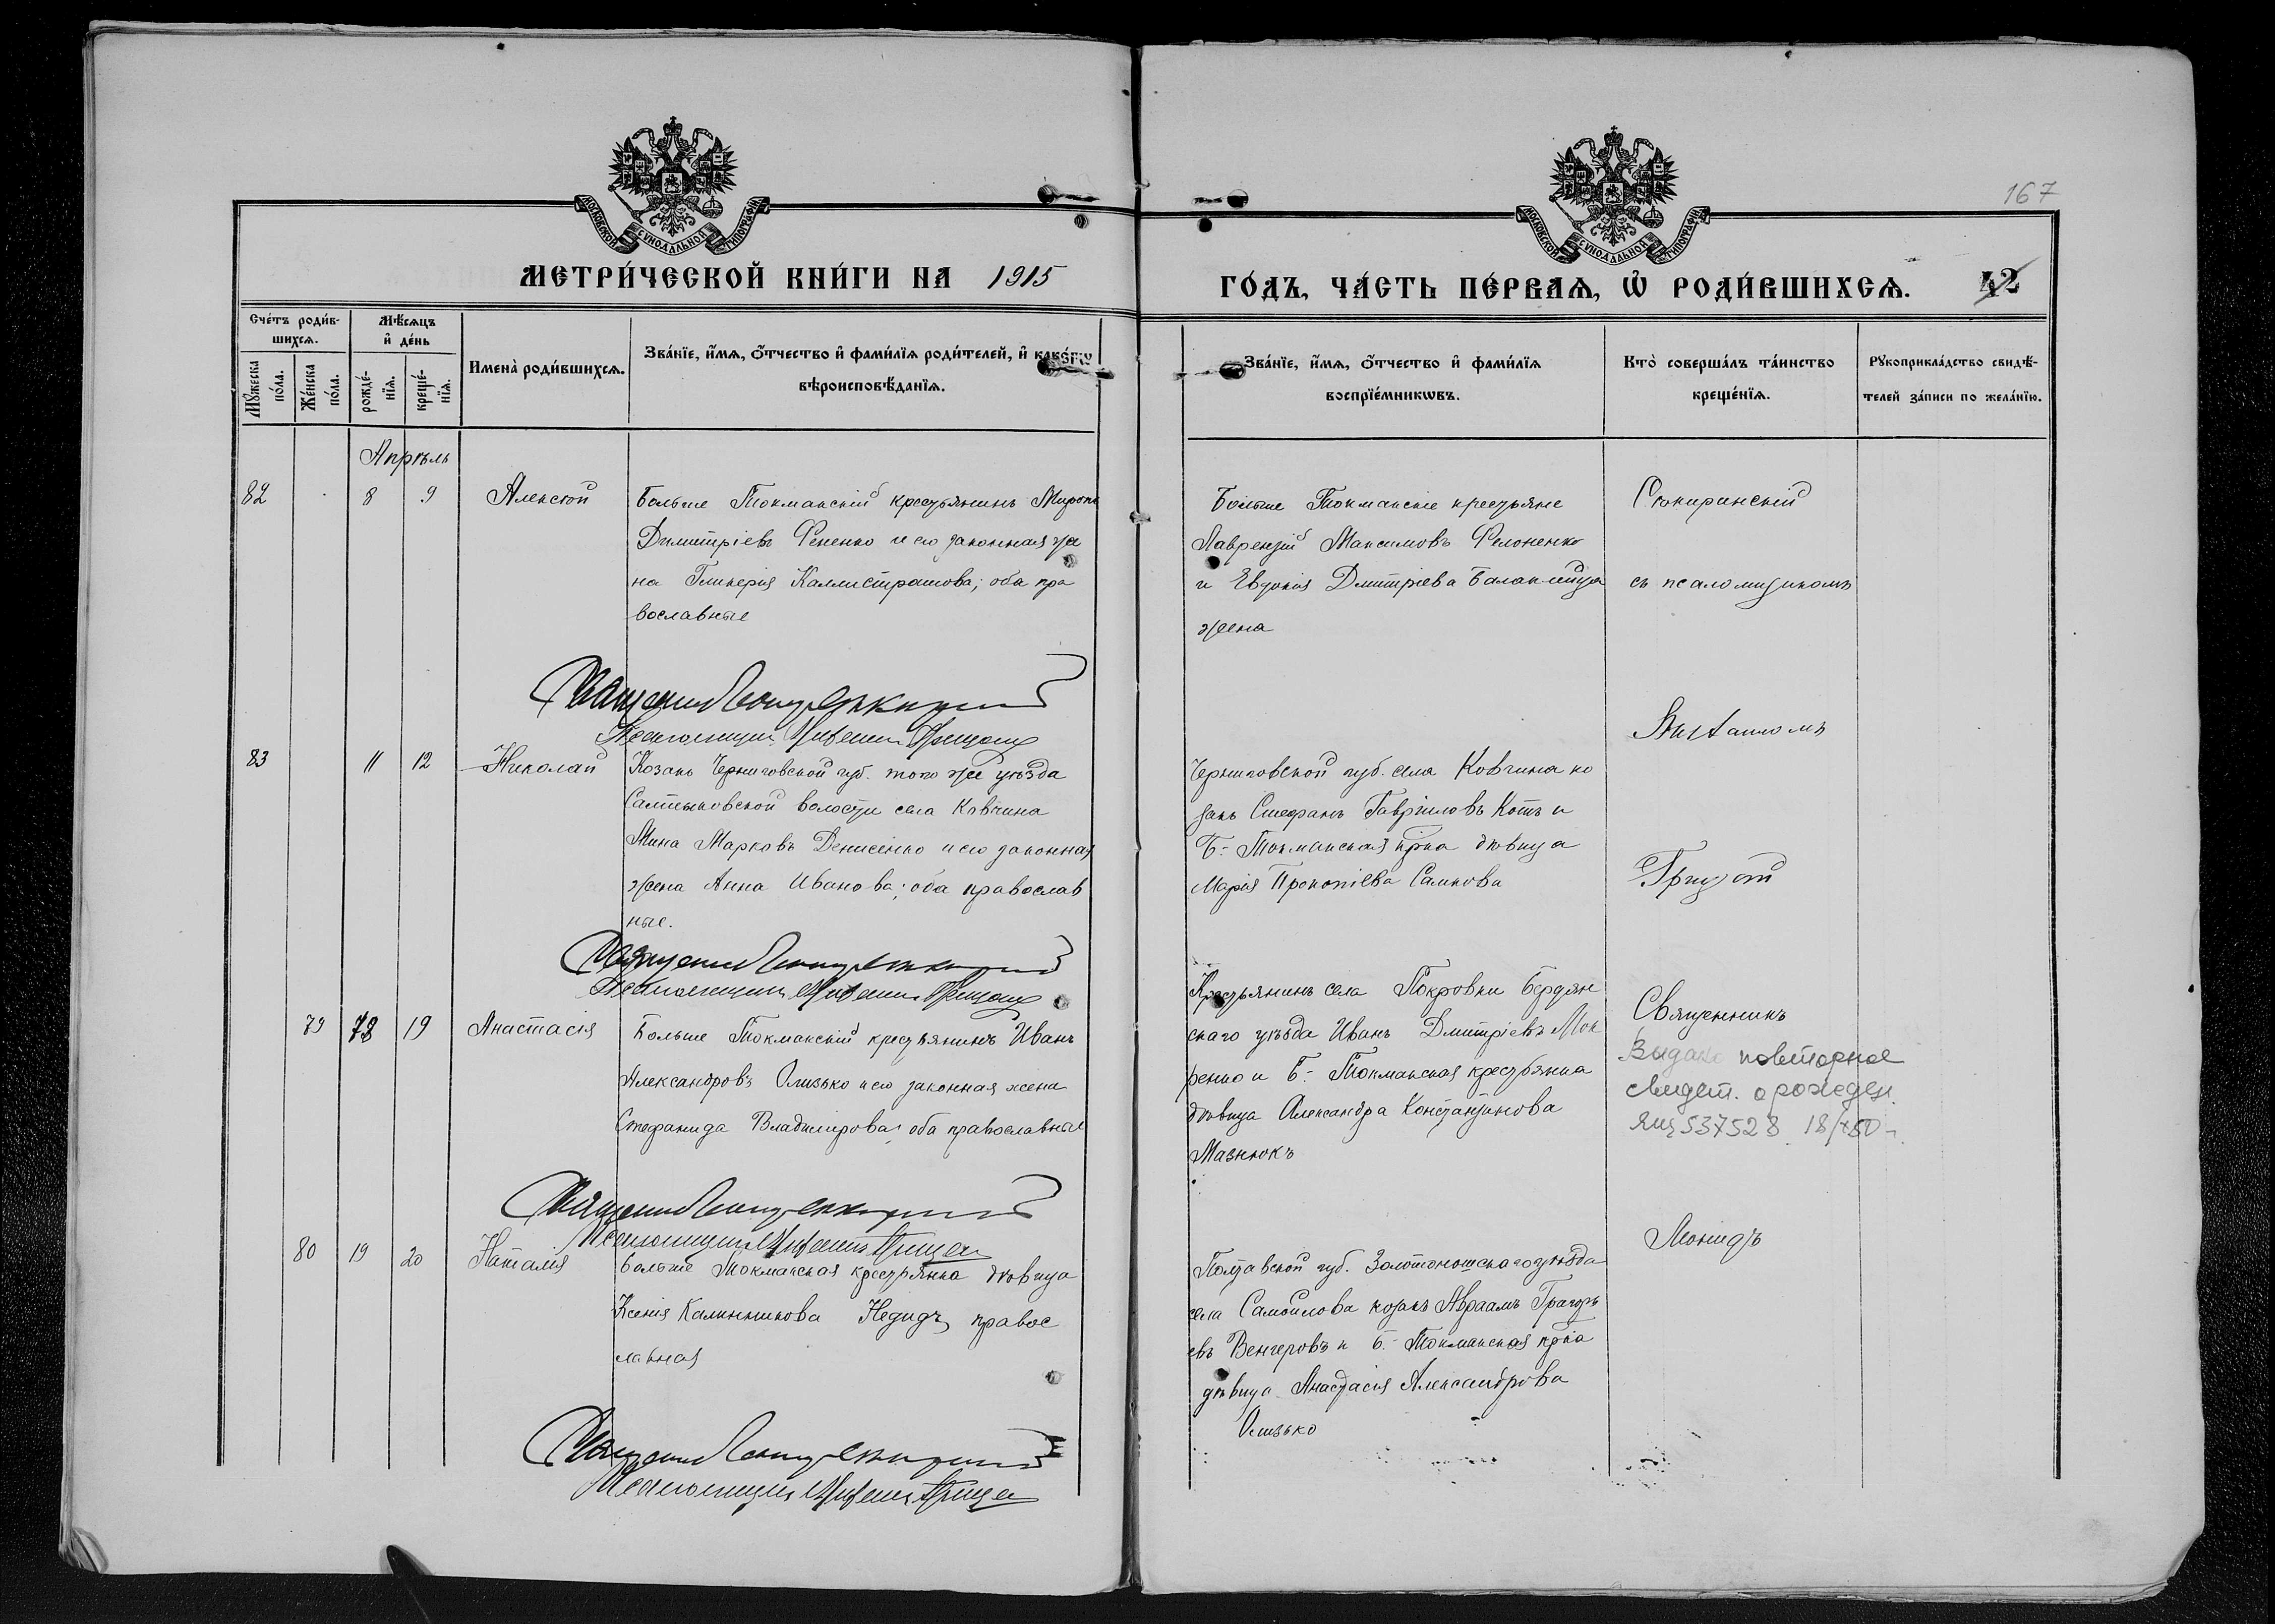 167
МОСКОВСКОЙ СѴНОДАЛЬНОЙ ТИПОГРАФІИ
МОСКОВСКОЙ СѴНОДАЛЬНОЙ ТИПОГРАФІИ
МЕТРИ́ЧЕСКОЙ КНИ́ГИ НА 1915
ГО́ДЪ, ЧА́СТЬ ПЕ́РВАѦ, Ѽ РОДИ́ВШИХСѦ. 42
Сче́тъ роди́в-
шихсѧ.
Мѣ́сѧцъ
и҆ де́нь
Мꙋ́жеска
по́ла.
Же́нска
по́ла.
рожде́-
нїѧ.
креще́-
нїѧ.
Имена̀ роди́вшихсѧ.
Зва́нїе, и҆́мѧ, ѻ҆́тчество и҆ фами́лїѧ роди́телей, и҆ како́гѡ
вѣроисповѣ́данїѧ.
Зва́нїе, и҆́мѧ, ѻ҆́тчество и҆ фами́лїѧ
воспрїе́мникѡвъ.
Кто̀ соверша́лъ та́инство
креще́нїѧ.
Рꙋкоприкла́дство свидѣ́-
телей за́писи по жела́нїю.
Апрѣль
82 8 9 Алексѣй
Больше Токмакскій крестьянинъ Миронъ
Димитріевъ Фененко и его законная же
на Гликерія Каллистратова; оба пра
вославные
Больше Токмакскіе крестьяне
Лаврентій Максимовъ Филоненко
и Евдокія Дмитріева
жена
съ псаломщикомъ
83 11 12 Николай
Козакъ Черниговской губ. того же уѣзда
Салтыковской волости села Ковчина
Мина Марковъ Денисенко и его законная
жена Анна Иванова; оба православ
ные.
Черниговской губ. села Ковчина ко
закъ Стефанъ Гавріиловъ Котъ и
Б.-Токмакская кр҃ка дѣвица
Марія Прокопіева Салкова
79 18 19 Анастасія
Больше Токмакскій крестьянинъ Иванъ
Александровъ Олизько и его законная жена
Стефанида Владимірова; оба православные
Крестьянинъ села Покровки Бердян
скаго уѣзда Иванъ Дмитріевъ Мок
ренко и Б.-Токмакская крестьянка
дѣвица Александра Константинова
Мазнюкъ
Священникъ
Видано повторное
свидет. о рожден.
537528
Леонидъ
80 19 20 Наталія
Больше Токмакская крестьянка дѣвица
Ксенія Калинникова правос
лавная
Полтавской губ. Золотоношскаго уѣзда
села Самойлова козакъ Авраамъ Григорь
евъ Венгеровъ и Б.-Токмакская кр҃ка
дѣвица Анастасія Александрова
Олизько